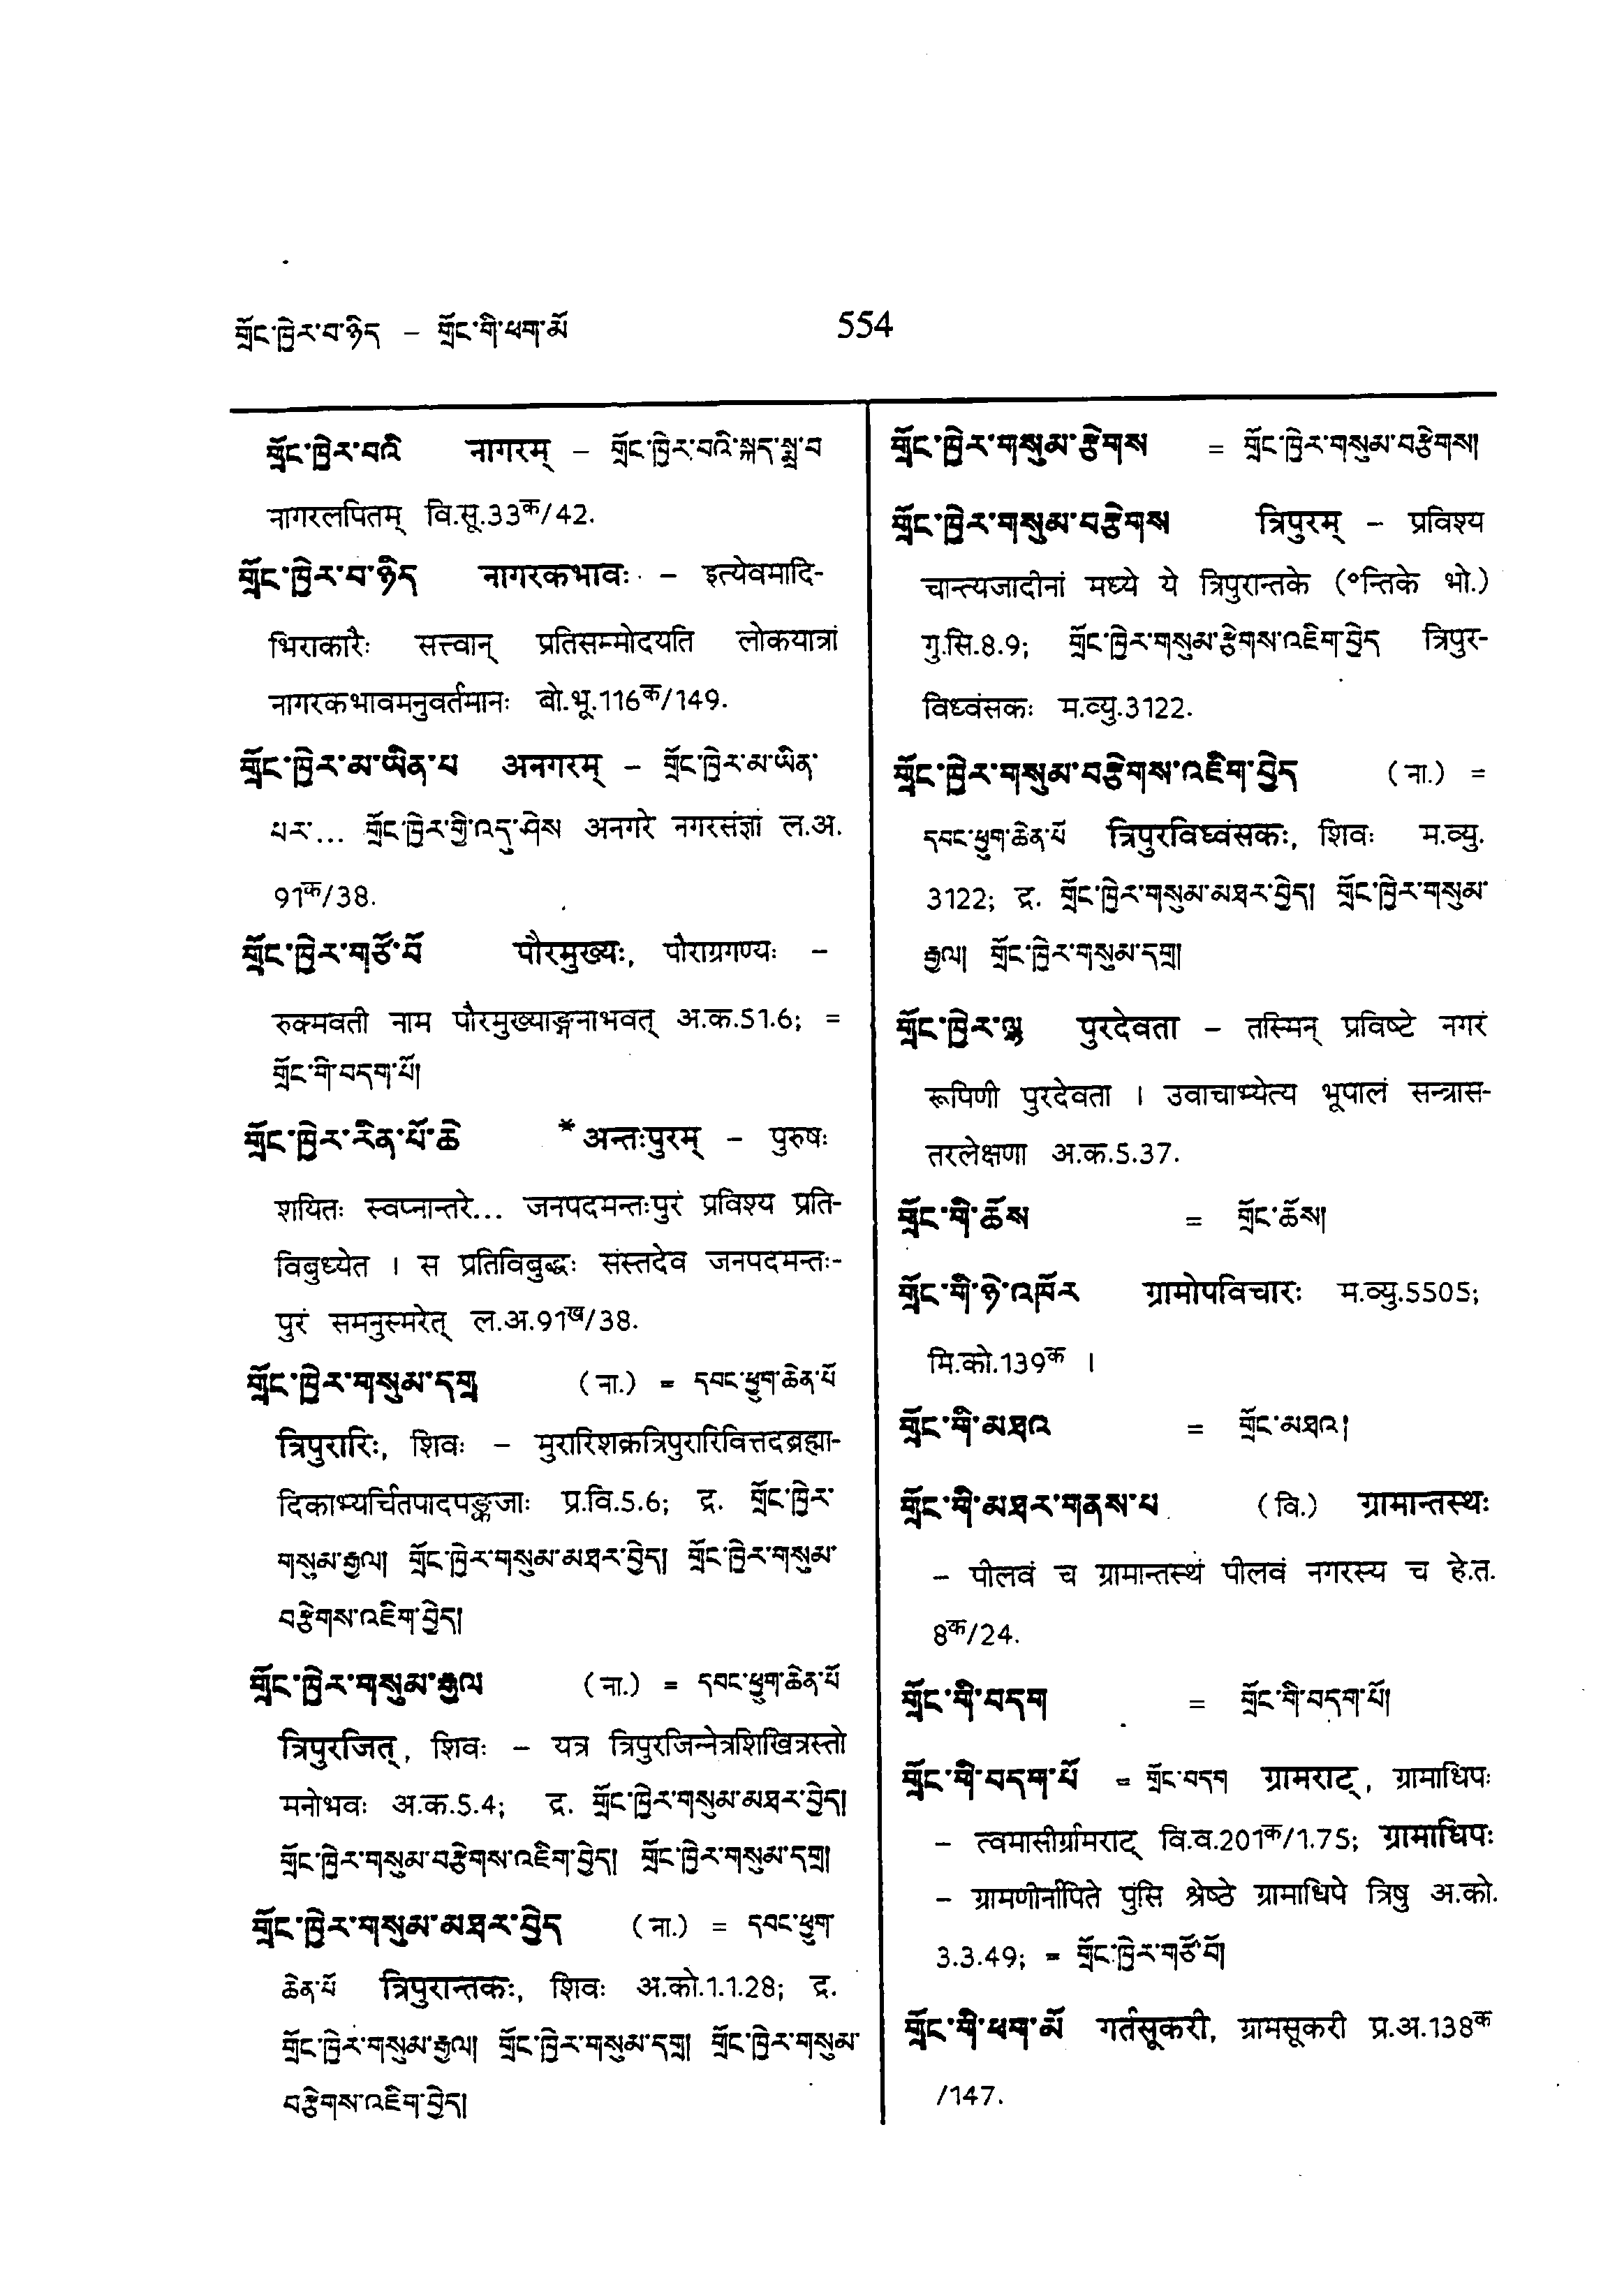 གྲོང་ཁྱེར་བ་ཉིད – གྲོང་གི་ཕག་མོ
554
གྲོང་ཁྱེར་བའི नागरम् – གྲོང་ཁྱེར་བའི་སྐད་སྨྲ་བ
नागरलपितम् वि.सू.33क/42.
གྲོང་ཁྱེར་བ་ཉིད नागरकभावः – इत्येवमादि-
भिराकारैः सत्त्वान् प्रतिसम्मोदयति लोकयात्रां
नागरकभावमनुवर्तमानः बो.भू.116क/149.
གྲོང་ཁྱེར་མ་ཡིན་པ अनगरम् – གྲོང་ཁྱེར་མ་ཡིན་
པར་... གྲོང་ཁྱེར་གྱི་འདུ་ཤེས अनगरे नगरसंज्ञां ल.अ.
91क/38.
གྲོང་ཁྱེར་གཙོ་བོ पौरमुख्यः, पौराग्रगण्यः –
रुक्मवती नाम पौरमुख्याङ्गनाभवत् अ.क.51.6; =
གྲོང་གི་བདག་པོ།
གྲོང་ཁྱེར་རིན་པོ་ཆེ *अन्तःपुरम् – पुरुषः
शयितः स्वप्नान्तरे... जनपदमन्तःपुरं प्रविश्य प्रति-
विबुध्येत । स प्रतिविबुद्धः संस्तदेव जनपदमन्तः-
पुरं समनुस्मरेत् ल.अ.91ख/38.
གྲོང་ཁྱེར་གསུམ་དགྲ (ना.) = དབང་ཕྱུག་ཆེན་པོ
त्रिपुरारिः, शिवः – मुरारिशक्रत्रिपुरारिवित्तदब्रह्मा-
दिकाभ्यर्चितपादपङ्कजाः प्र.वि.5.6; द्र. གྲོང་ཁྱེར་
གསུམ་རྒྱལ། གྲོང་ཁྱེར་གསུམ་མཐར་བྱེད། གྲོང་ཁྱེར་གསུམ་
བརྩེགས་འཇིག་བྱེད།
གྲོང་ཁྱེར་གསུམ་རྒྱལ (ना.) = དབང་ཕྱུག་ཆེན་པོ
त्रिपुरजित्, शिवः – यत्र त्रिपुरजिन्नेत्रशिखित्रस्तो
मनोभवः अ.क.5.4; द्र. གྲོང་ཁྱེར་གསུམ་མཐར་བྱེད།
གྲོང་ཁྱེར་གསུམ་བརྩེགས་འཇིག་བྱེད། གྲོང་ཁྱེར་གསུམ་དགྲ།
གྲོང་ཁྱེར་གསུམ་མཐར་བྱེད (ना.) = དབང་ཕྱུག་
ཆེན་པོ त्रिपुरान्तकः, शिवः अ.को.1.1.28; द्र.
གྲོང་ཁྱེར་གསུམ་རྒྱལ། གྲོང་ཁྱེར་གསུམ་དགྲ། གྲོང་ཁྱེར་གསུམ་
བརྩེགས་འཇིག་བྱེད།
གྲོང་ཁྱེར་གསུམ་རྩེགས = གྲོང་ཁྱེར་གསུམ་བརྩེགས།
གྲོང་ཁྱེར་གསུམ་བརྩེགས त्रिपुरम् – प्रविश्य
चान्त्यजादीनां मध्ये ये त्रिपुरान्तके (॰न्तिके भो.)
गु.सि.8.9; གྲོང་ཁྱེར་གསུམ་རྩེགས་འཇིག་བྱེད त्रिपुर-
विध्वंसकः म.व्यु.3122.
གྲོང་ཁྱེར་གསུམ་བརྩེགས་འཇིག་བྱེད (ना.) =
དབང་ཕྱུག་ཆེན་པོ त्रिपुरविध्वंसकः, शिवः म.व्यु.
3122; द्र. གྲོང་ཁྱེར་གསུམ་མཐར་བྱེད། གྲོང་ཁྱེར་གསུམ་
རྒྱལ། གྲོང་ཁྱེར་གསུམ་དགྲ།
གྲོང་ཁྱེར་ལྷ पुरदेवता – तस्मिन् प्रविष्टे नगरं
रूपिणी पुरदेवता । उवाचाभ्येत्य भूपालं सन्त्रास-
तरलेक्षणा अ.क.5.37.
གྲོང་གི་ཆོས = གྲོང་ཆོས།
གྲོང་གི་ཉེ་འཁོར ग्रामोपविचारः म.व्यु.5505;
मि.को.139क ।
གྲོང་གི་མཐའ = གྲོང་མཐའ།
གྲོང་གི་མཐར་གནས་པ (वि.) ग्रामान्तस्थः
– पीलवं च ग्रामान्तस्थं पीलवं नगरस्य च हे.त.
8क/24.
གྲོང་གི་བདག = གྲོང་གི་བདག་པོ།
གྲོང་གི་བདག་པོ = གྲོང་བདག ग्रामराट्, ग्रामाधिपः
– त्वमासीर्ग्रामराट् वि.व.201क/1.75; ग्रामाधिपः
– ग्रामणीर्नापिते पुंसि श्रेष्ठे ग्रामाधिपे त्रिषु अ.को.
3.3.49; = གྲོང་ཁྱེར་གཙོ་བོ།
གྲོང་གི་ཕག་མོ गर्तसूकरी, ग्रामसूकरी प्र.अ.138क
/147.